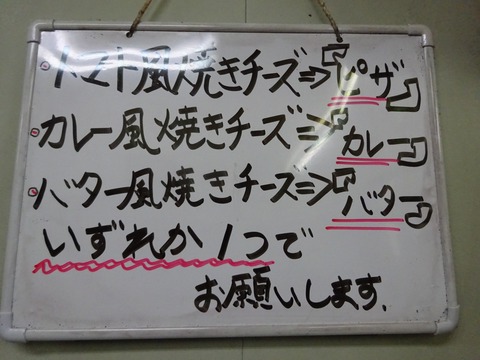 ・トマト風焼きチーズ⇒『ピザ』
・カレー風焼きチーズ⇒『カレー』
・バター風焼きチーズ⇒『バター』
いずれか1つで
お願いします.